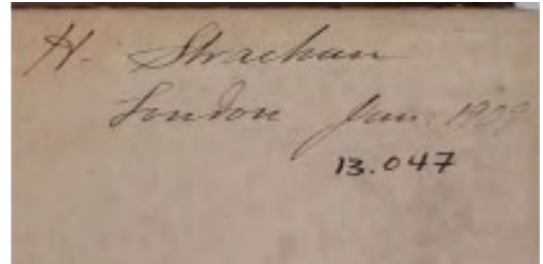 H. Strachan
London Jan. 1909
13.047